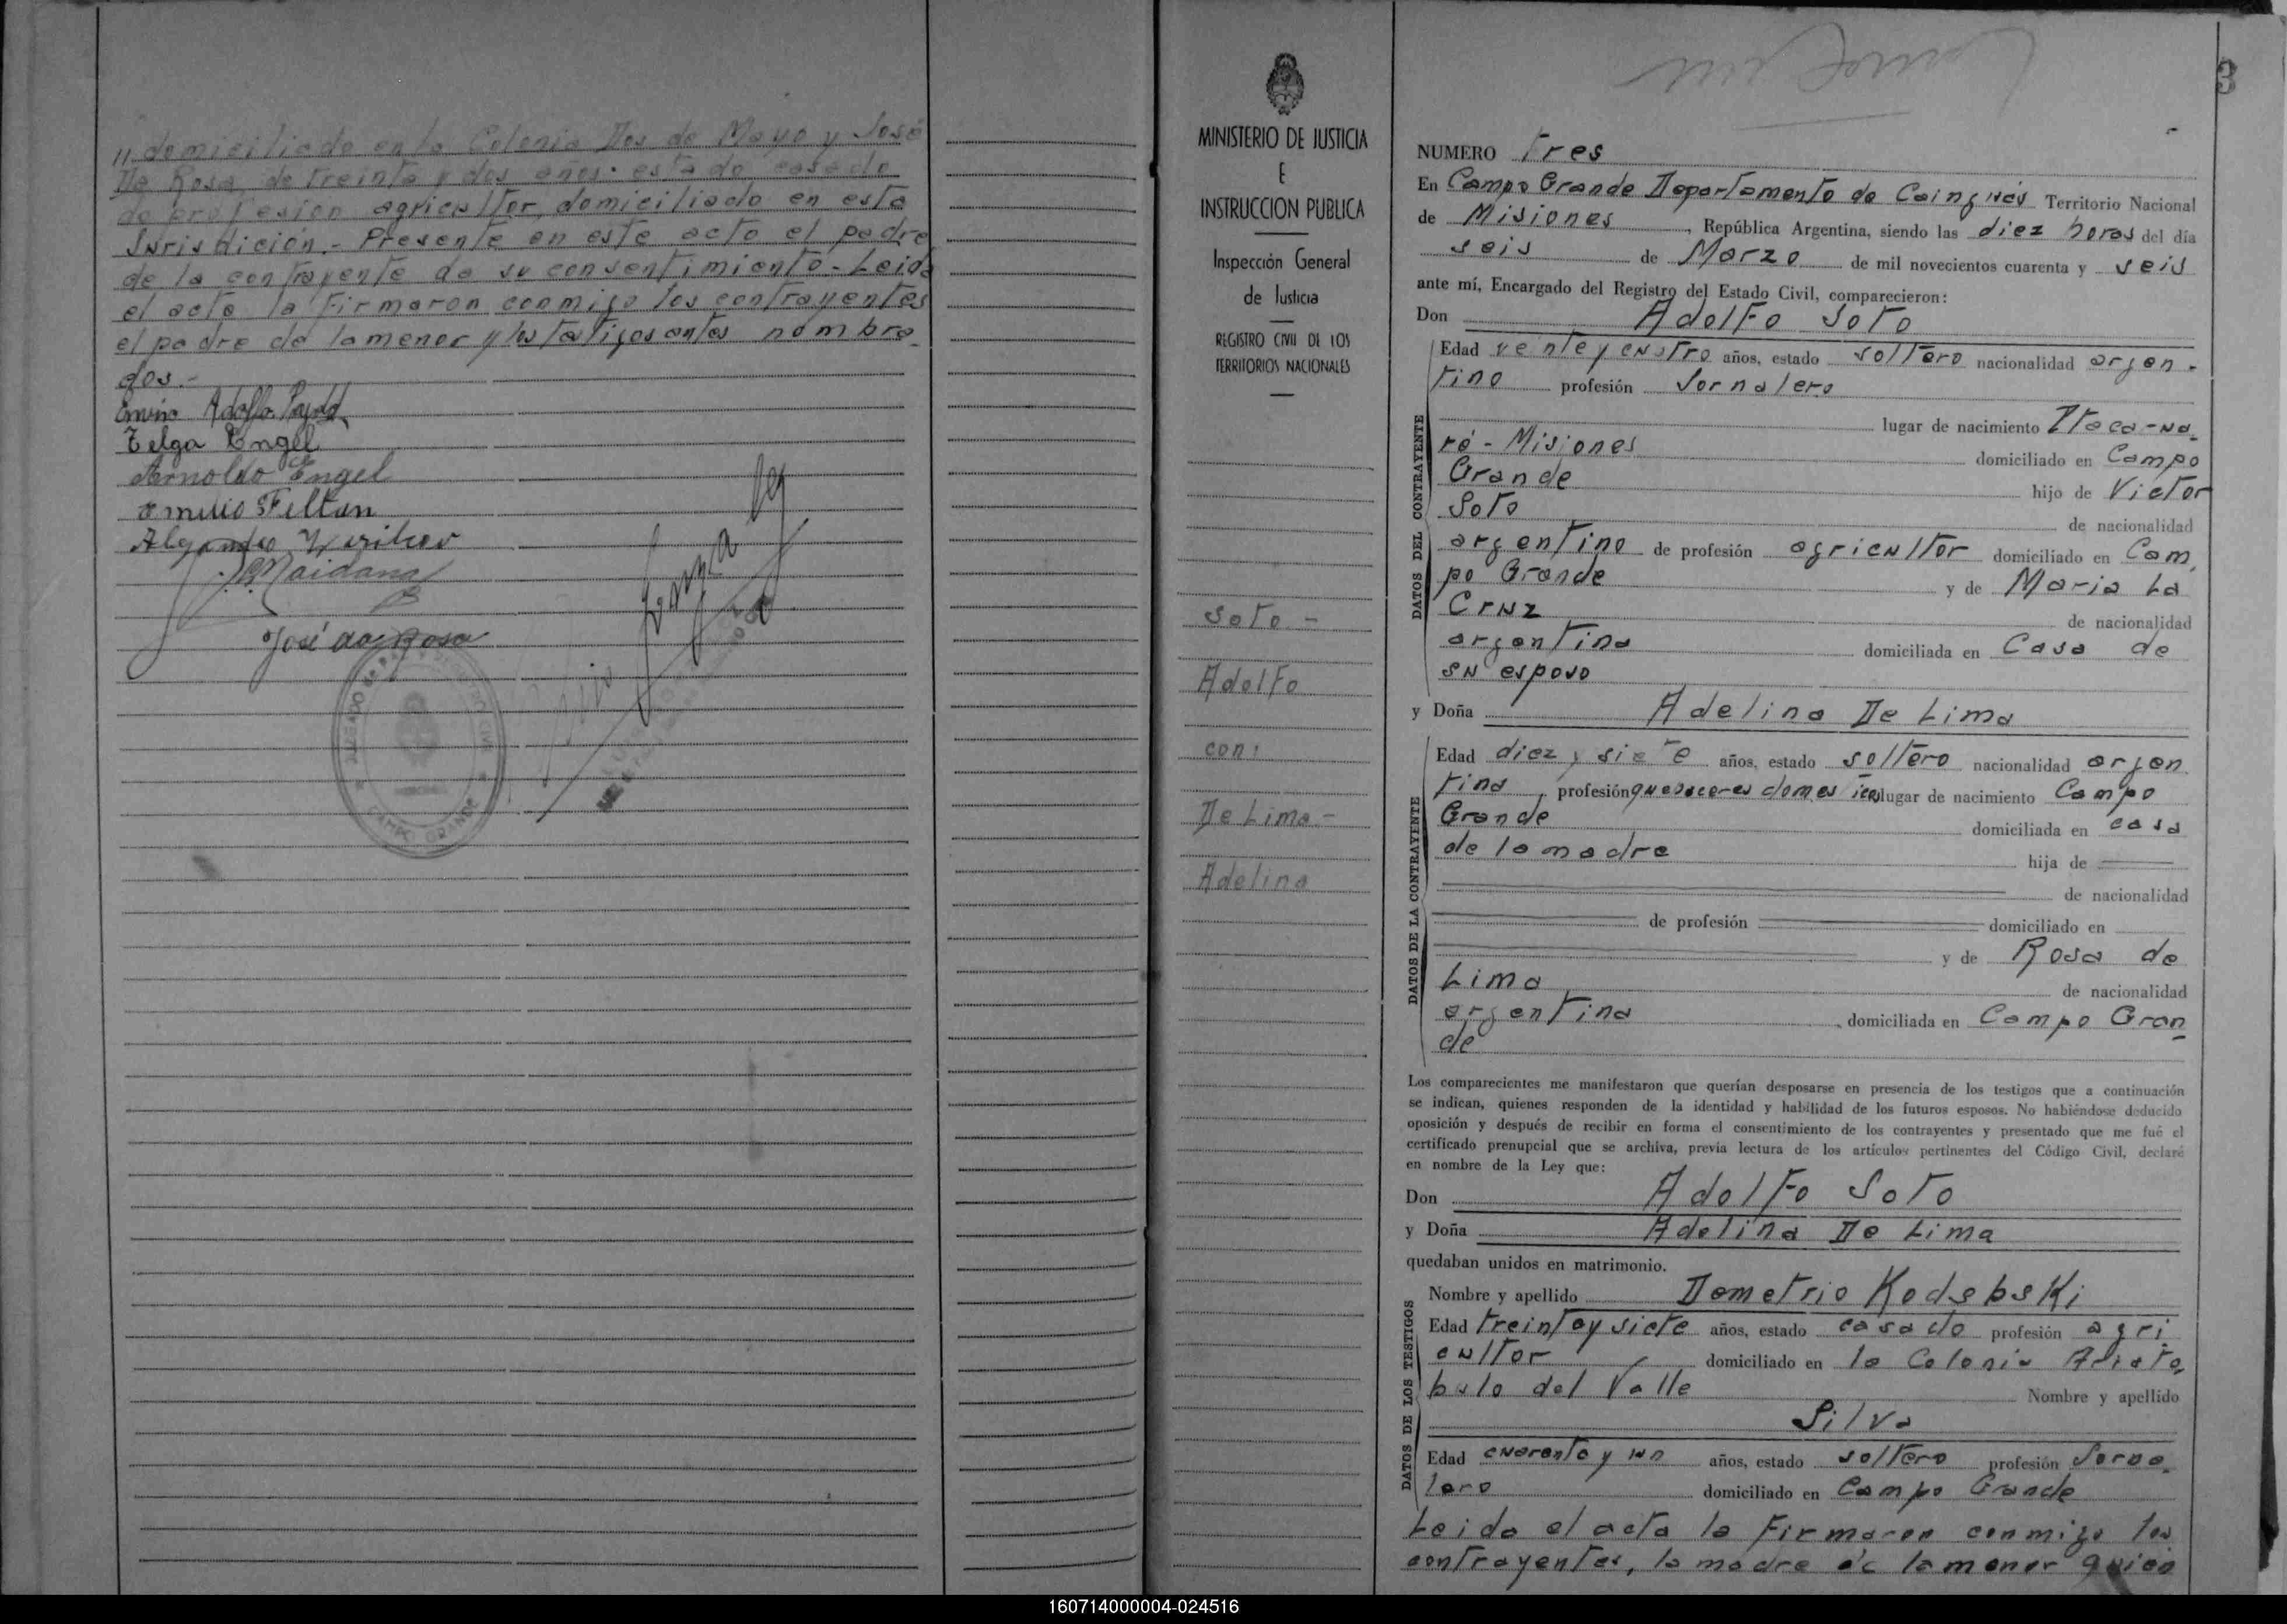 " domiciliado en la Colonia Dos de Mayo y José
De Rosa, de treinta y dos años. estado casado
de profesion agricultor, domiciliado en esta
Jurisdición.- Presente en este acto el padre
de la contrayente da su consentimiento.- Leida
el acta la Firmaron conmigo los contrayentes
el padre de la menor y los testigos antes nombra-
dos.-
Adolfo
Telga Engel
Arnoldo Engel
Emilio Feltan
Maidana
José da Rosa
CAMPO GRANDE
MINISTERIO DE JUSTICIA
E
INSTRUCCION PUBLICA
Inspección General
de Justicia
REGISTRO CIVIL DE LOS
TERRITORIOS NACIONALES
Soto.-
Adolfo
con:
De Lima.-
Adelina
3
NUMERO Tres
En Campo Grande Departamento de Cainguás Territorio Nacional
de Misiones, República Argentina, siendo las diez horas del día
seis de Marzo de mil novecientos cuarenta y seis
ante mí, Encargado del Registro del Estado Civil, comparecieron:
Don Adolfo Soto
Edad veinte y cuatro años, estado soltero nacionalidad argen-
tino profesión Jornalero
lugar de nacimiento Itaca-ua-
ré - Misiones domiciliado en Campo
Grande hijo de Victor
Soto de nacionalidad
argentino de profesión agricultor domiciliado en Cam-
po Grande y de Maria La
Cruz de nacionalidad
argentina domiciliada en Casa de
su esposo
DATOS DEL CONTRAYENTE
y Doña Adelina De Lima
Edad diez y siete años, estado soltero nacionalidad argen
tina, profesión quehaceres domesticos lugar de nacimiento Campo
Grande domiciliada en casa
de la madre hija de
de nacionalidad
de profesión domiciliado en
y de Rosa de
Lima de nacionalidad
argentina, domiciliada en Campo Gran
de
DATOS DE LA CONTRAYENTE
Los comparecientes me manifestaron que querían desposarse en presencia de los testigos que a continuación
se indican, quienes responden de la identidad y habilidad de los futuros esposos. No habiéndose deducido
oposición y después de recibir en forma el consentimiento de los contrayentes y presentado que me fué el
certificado prenupcial que se archiva, previa lectura de los artículos pertinentes del Código Civil, declaré
en nombre de la Ley que:
Don Adolfo Soto
y Doña Adelina De Lima
quedaban unidos en matrimonio.
Nombre y apellido Demetrio Kodebski
Edad treinta y siete años, estado casado profesión agri
cultor domiciliado en la Colonia Aristo-
bulo del Valle Nombre y apellido
Silva
Edad cuarenta y un años, estado soltero profesión Jorna-
lero domiciliado en Campo Grande
DATOS DE LOS TESTIGOS
Leida el acta la Firmaron conmigo los
contrayentes, la madre de la menor quien
160714000004-024516